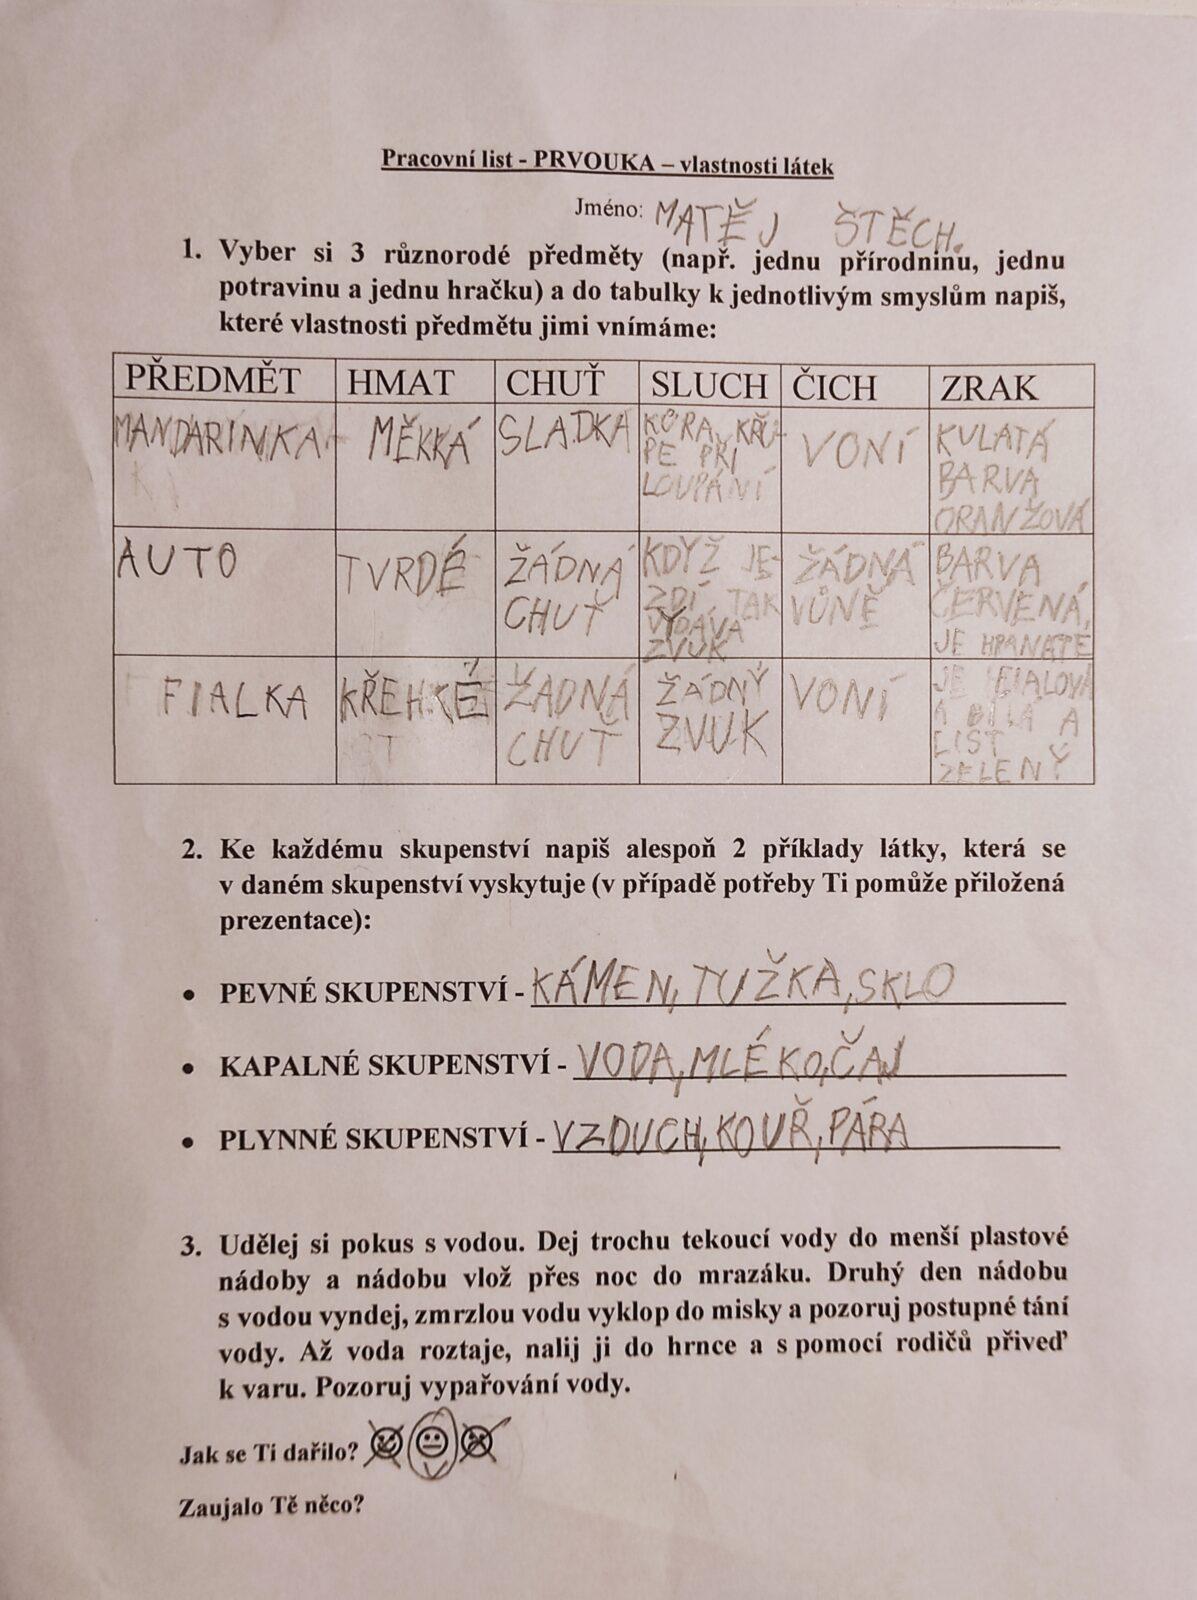 Pracovní list - PRVOUKA – vlastnosti látek
Jméno: MATĚJ ŠTĚCH.
1. Vyber si 3 různorodé předměty (např. jednu přírodninu, jednu
potravinu a jednu hračku) a do tabulky k jednotlivým smyslům napiš,
které vlastnosti předmětu jimi vnímáme:
PŘEDMĚT HMAT CHUŤ SLUCH ČICH ZRAK
MANDARINKA MĚKKÁ SLADKÁ KŮRA KŘU-
PE PŘI
LOUPÁNÍ
VONÍ
KULATÁ
BARVA
ORANŽOVÁ
AUTO TVRDÉ ŽÁDNÁ
CHUŤ
KDYŽ JE-
ZDÍ TAK
VYDÁVÁ
ZVUK
ŽÁDNÁ
VŮNĚ
BARVA
ČERVENÁ,
JE HRANATÉ
FIALKA KŘEHKÉ ŽÁDNÁ
CHUŤ
ŽÁDNÝ
ZVUK
VONÍ
JE FIALOVÁ
A BÍLÁ A
LIST
ZELENÝ
2. Ke každému skupenství napiš alespoň 2 příklady látky, která se
v daném skupenství vyskytuje (v případě potřeby Ti pomůže přiložená
prezentace):
• PEVNÉ SKUPENSTVÍ - KÁMEN, TUŽKA, SKLO
• KAPALNÉ SKUPENSTVÍ - VODA, MLÉKO, ČAJ
• PLYNNÉ SKUPENSTVÍ - VZDUCH, KOUŘ, PÁRA
3. Udělej si pokus s vodou. Dej trochu tekoucí vody do menší plastové
nádoby a nádobu vlož přes noc do mrazáku. Druhý den nádobu
s vodou vyndej, zmrzlou vodu vyklop do misky a pozoruj postupné tání
vody. Až voda roztaje, nalij ji do hrnce a s pomocí rodičů přiveď
k varu. Pozoruj vypařování vody.
Jak se Ti dařilo?
Zaujalo Tě něco?